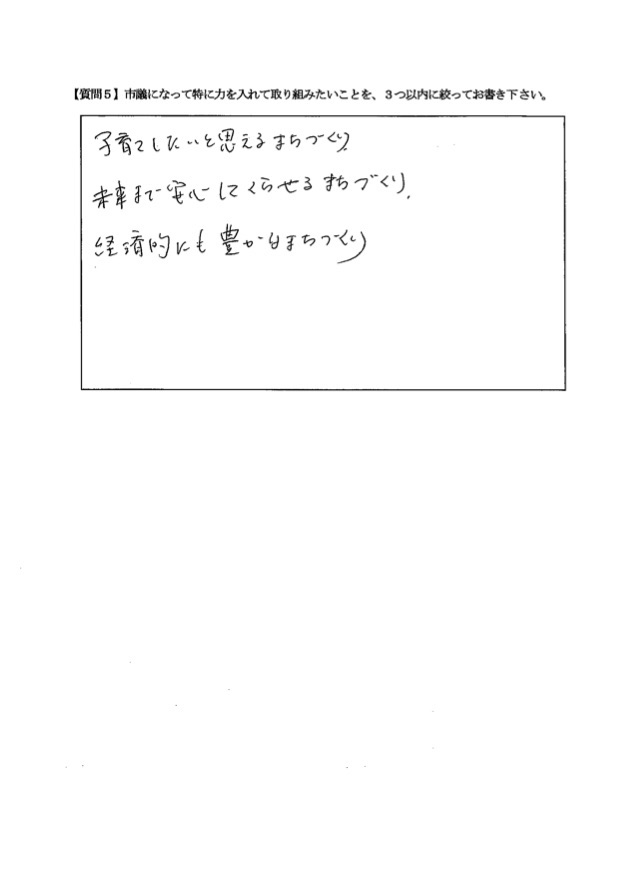 【質問５】市議になって特に力を入れて取り組みたいことを、３つ以内に絞ってお書き下さい。
子育てしたいと思えるまちづくり
未来まで安心してくらせるまちづくり.
経済的にも豊かなまちづくり